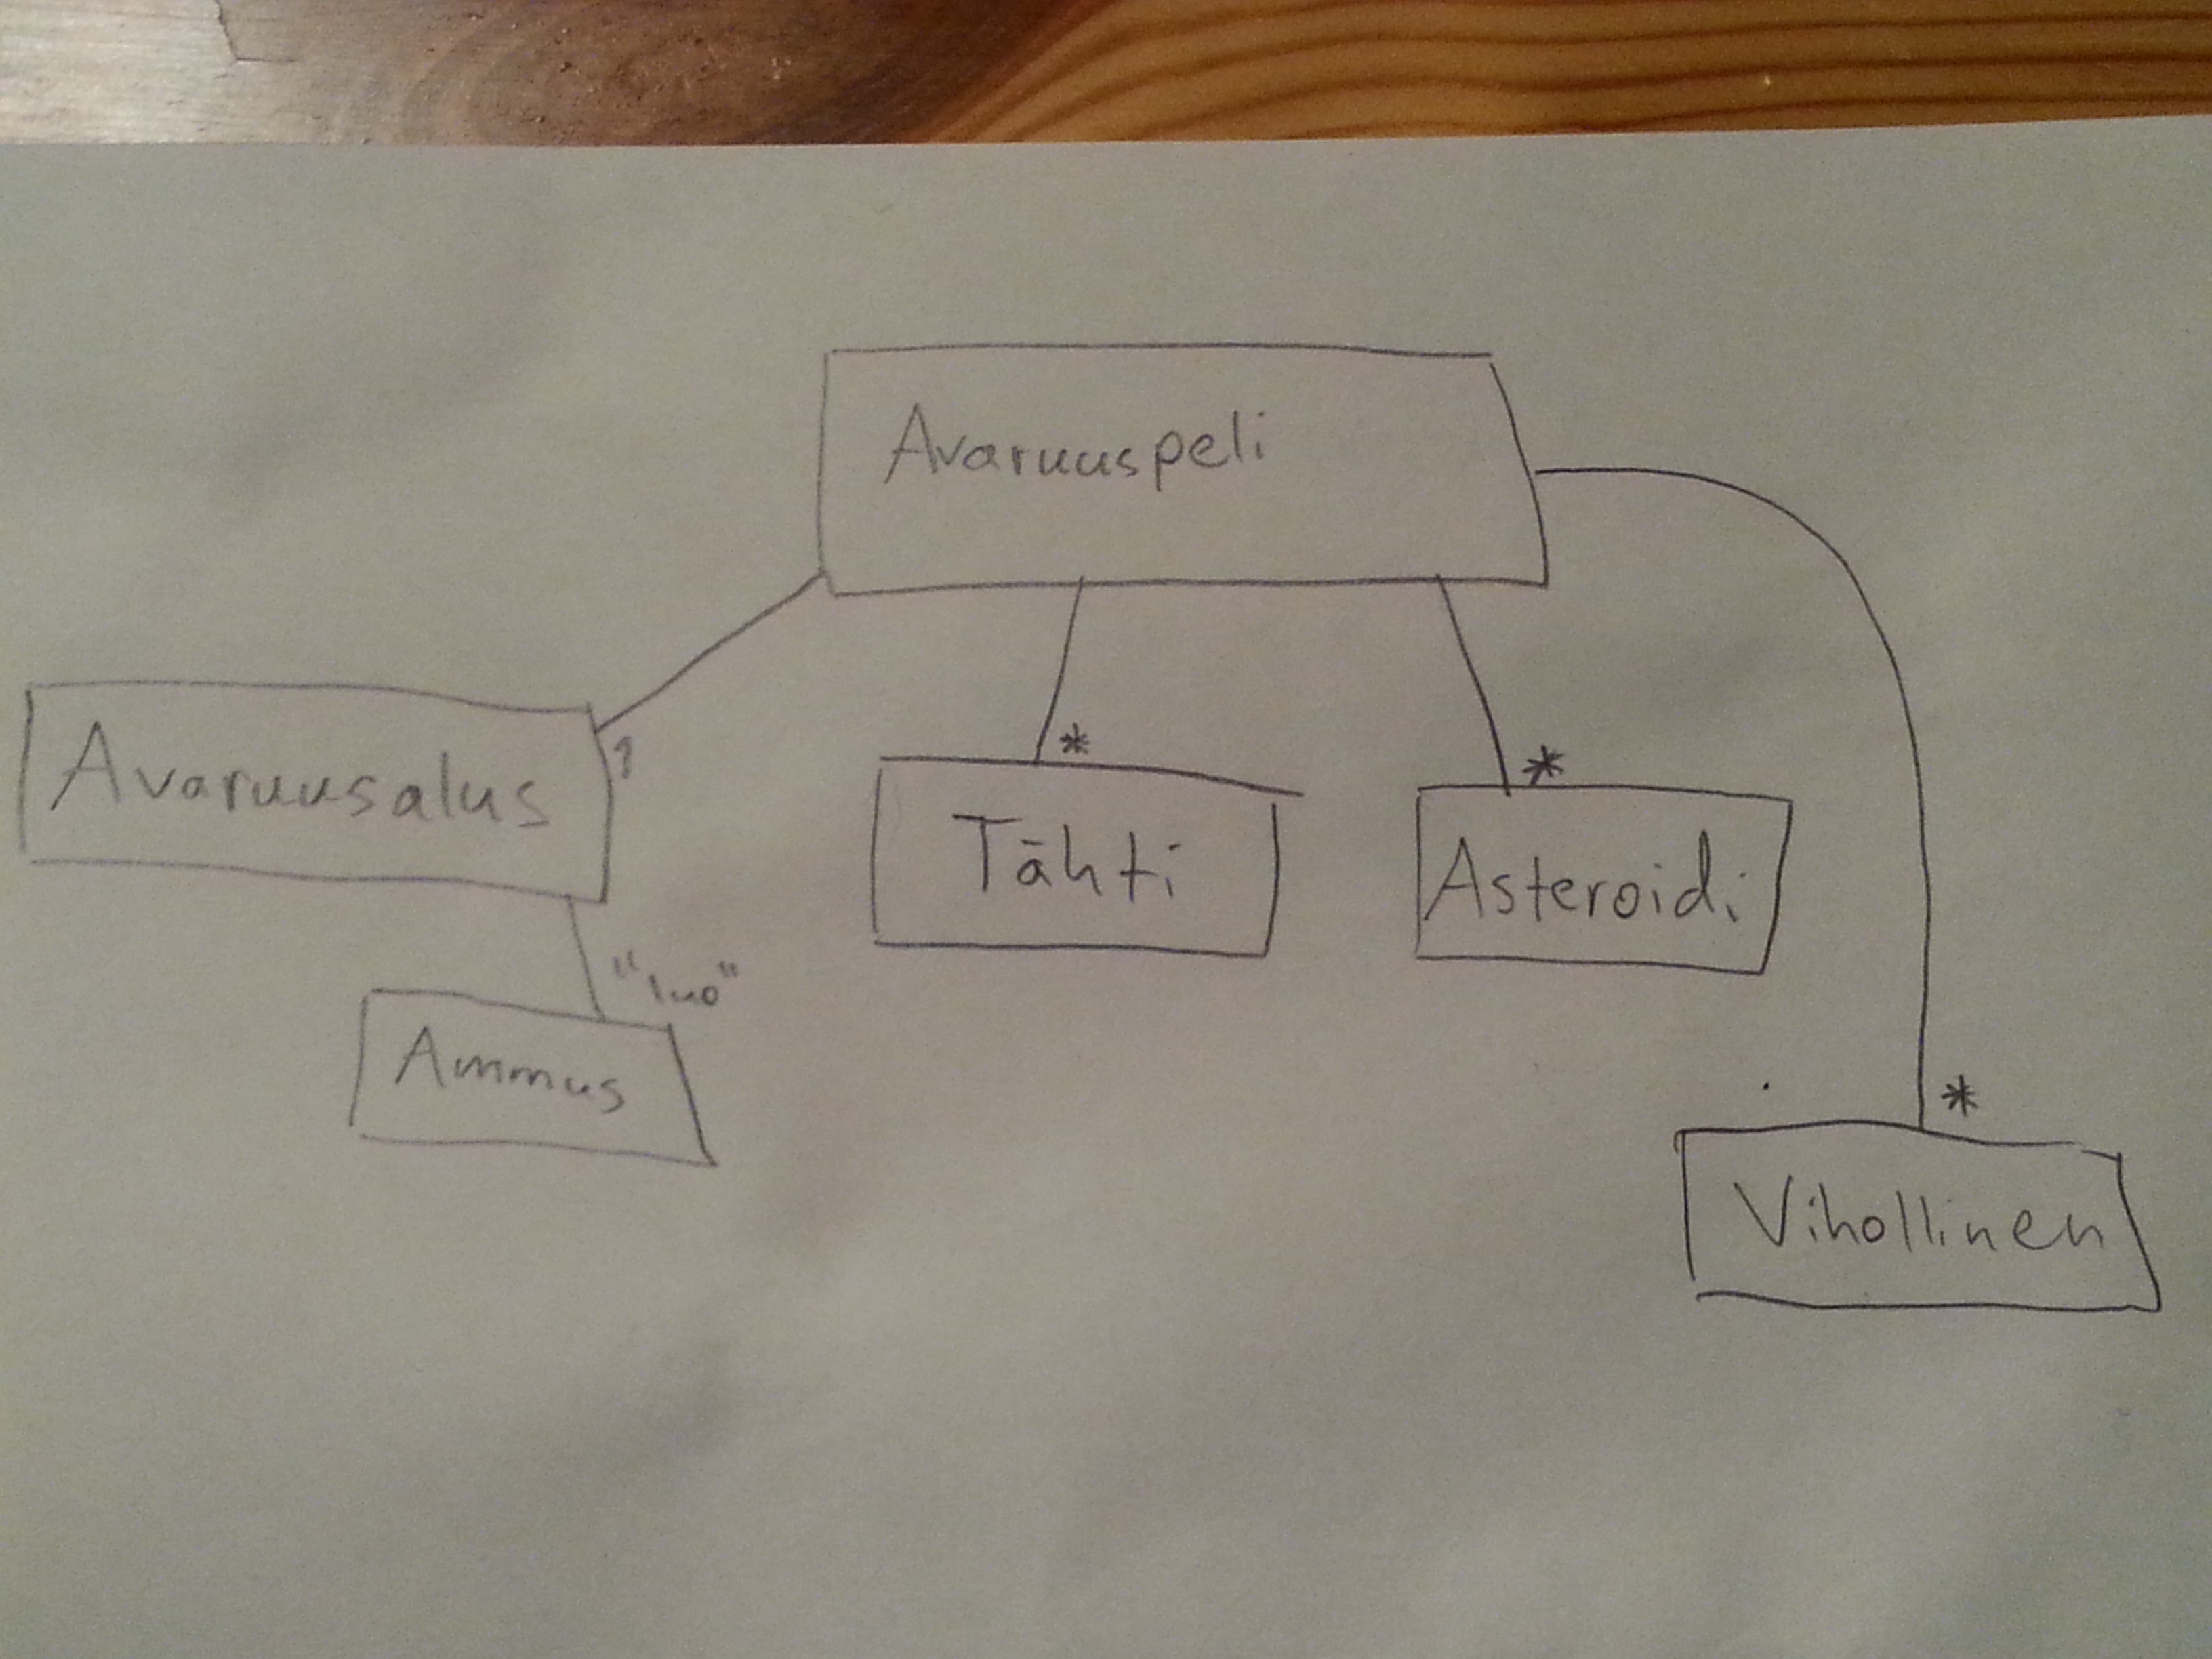 Avaruuspeli
Avaruusalus
1
*
Tähti
*
Asteroidi
"luo"
Ammus
*
Vihollinen